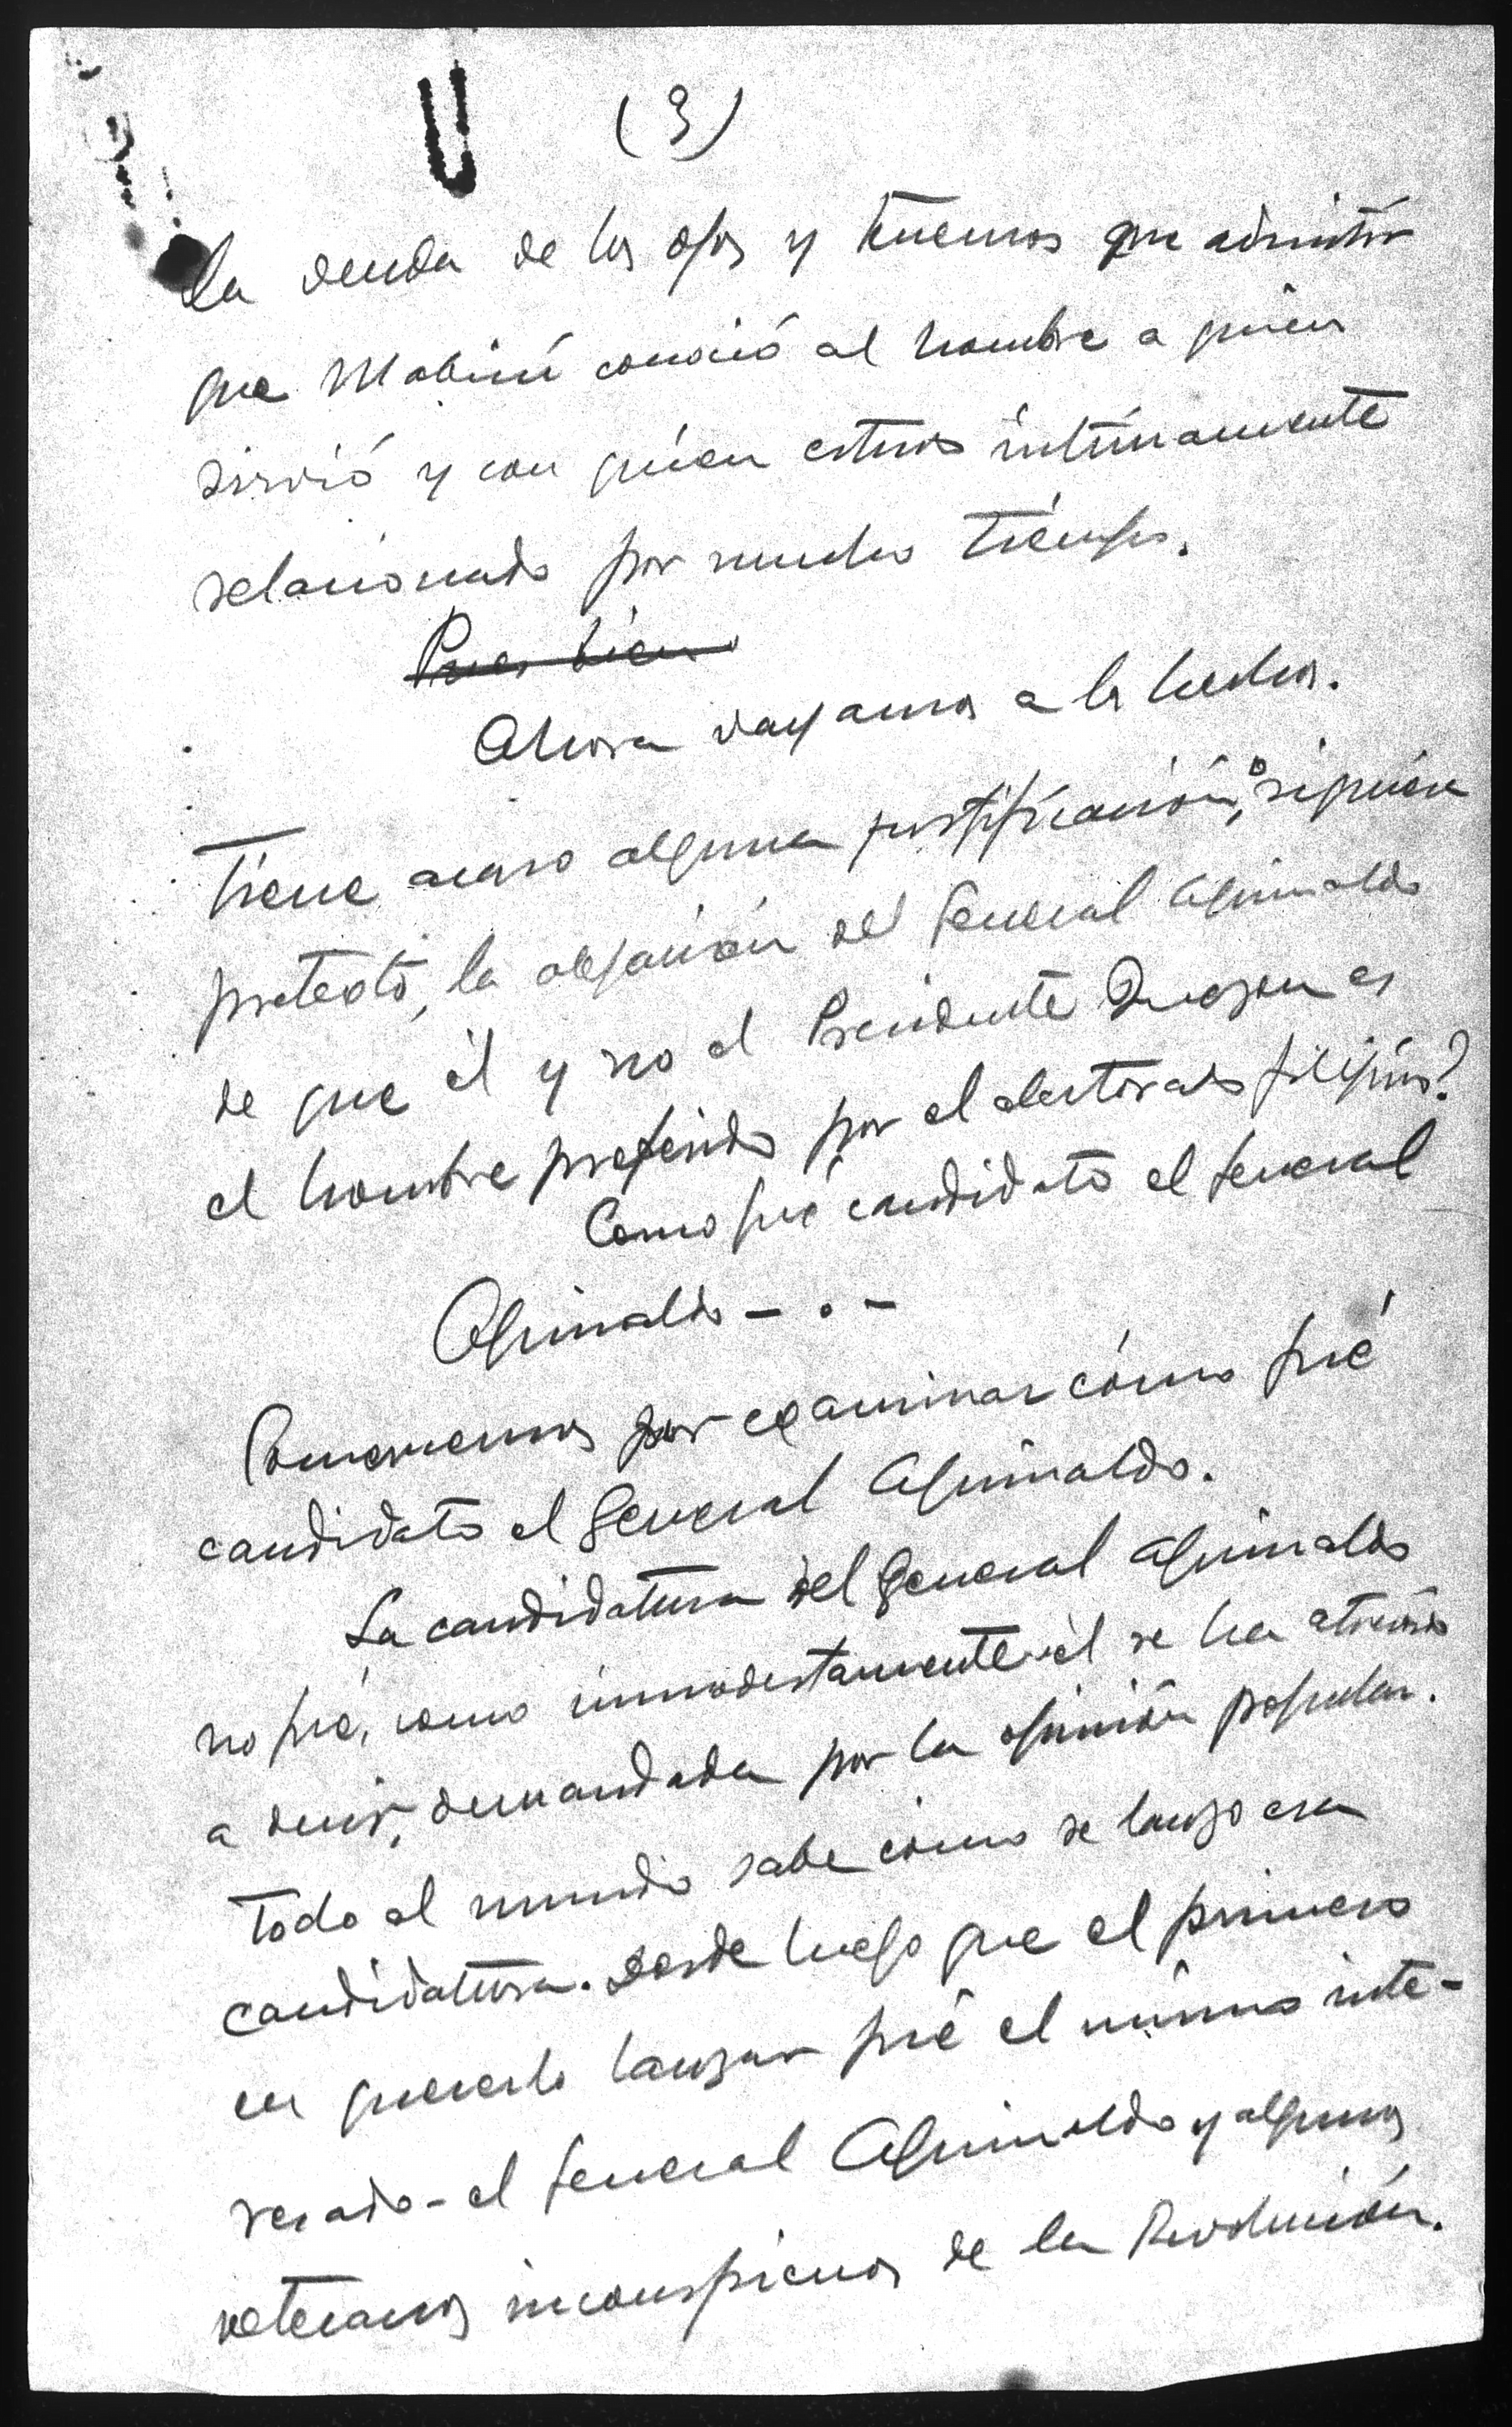 (3)
la venda de los ojos y tenemos que admitir
que Mabini conoció al hombre a quien
sirvió y con quien estuvo intimamente
relacionado por mucho tiempo.
Pues bien
Ahora vayamos a los hechos.
Tiene acaso alguna justificación, o siquiera
pretexto, la alegación del General Aguinaldo
de que él y no el Presidente Quezon es
el hombre preferido por el electorado filipino?
Como fué candidato el General
Aguinaldo - . -
Comencemos por examinar cómo fué
candidato el General Aguinaldo.
La candidatura del General Aguinaldo
no fué, como inmodestamente él se ha atrevido
a decir, demandada por la opinión popular.
Todo el mundo sabe cómo se lanzo esa
candidatura. Desde luego que el primero
en quererlo lanzar fué el mismo inte-
resado - el General Aguinaldo y algunos
veteranos inconspicuos de la Revolución.